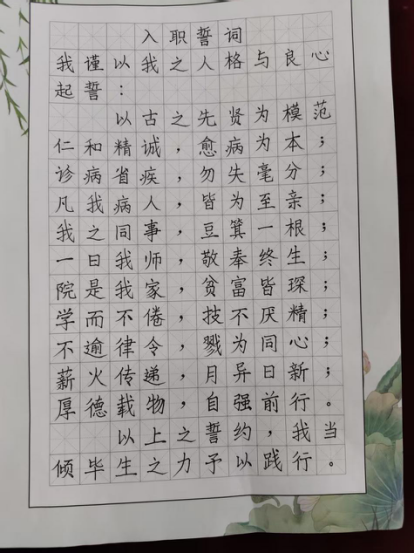 入职誓词
我谨以我之人格与良心
起誓：
以古之先贤为模范
仁和精诚，愈病为本；
诊病省疾，勿失毫分；
凡我病人，皆为至亲；
我之同事，豆箕一根；
一日我师，敬奉终生；
院是我家，贫富皆琛；
学而不倦，技不厌精；
不逾律令，戮为同心；
薪火传递，月异日新；
厚德载物，自强前行。
以上之誓约，我当
倾毕生之力予以践行。